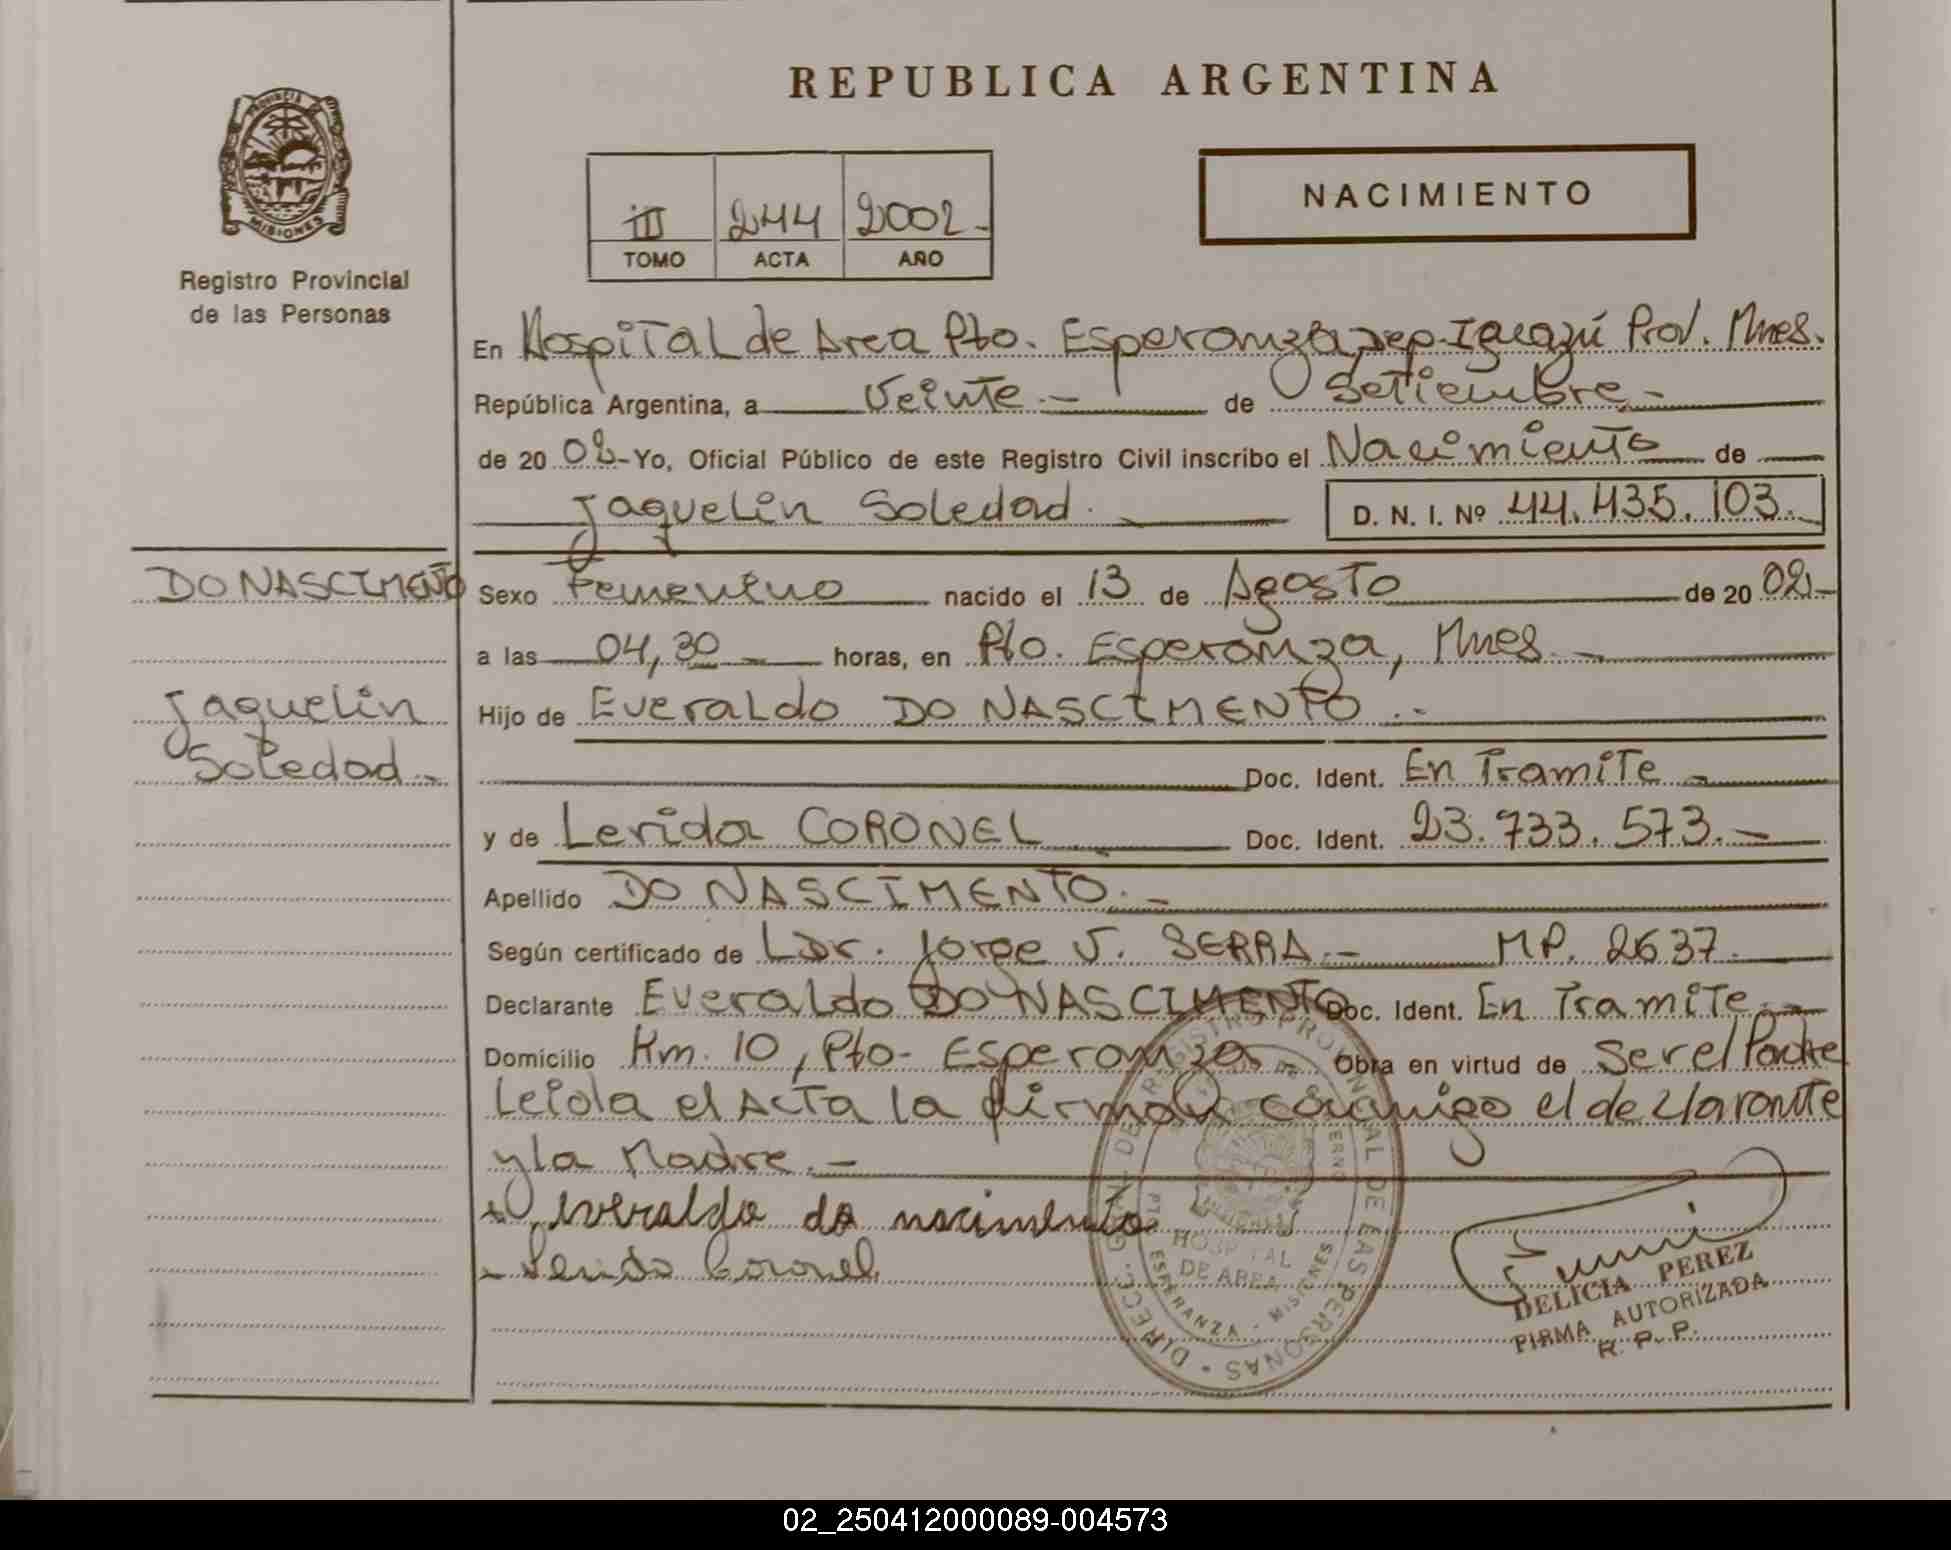 REPUBLICA ARGENTINA
PROVINCIA
MISIONES
Registro Provincial
de las Personas
III 244 2002-
TOMO ACTA AÑO
NACIMIENTO
En Hospital de Area Pto. Esperanza, Dep. Iguazú Prov. Mnes.
República Argentina, a Veinte.- de Setiembre.-
de 20 02-Yo, Oficial Público de este Registro Civil inscribo el Nacimiento de
Jaquelin Soledad. D. N. I. Nº 44.435.103.-
DO NASCIMENTO
Jaquelin
Soledad.-
Sexo Femenino nacido el 13 de Agosto de 20 02.-
a las 04,30 horas, en Pto. Esperanza, Mnes.-
Hijo de Everaldo DO NASCIMENTO.-
Doc. Ident. En Tramite.-
y de Lerida CORONEL Doc. Ident. 23.733.573.-
Apellido DO NASCIMENTO.-
Según certificado de Jorge V. SERRA.- MP. 2637.
Declarante Everaldo DO NASCIMENTO Doc. Ident. En Tramite.-
Domicilio Km. 10, Pto. Esperanza Obra en virtud de ser el Padre
Leida el Acta la firman conmigo el declarante
y la Madre.-
everaldo do nacimento
Lerida Coronel
DIRECC. GRAL. DEL REGISTRO PROVINCIAL DE LAS PERSONAS
HOSPITAL
DE AREA
PTO. ESPERANZA - MISIONES
DELICIA PEREZ
FIRMA AUTORIZADA
R. P. P.
02_250412000089-004573